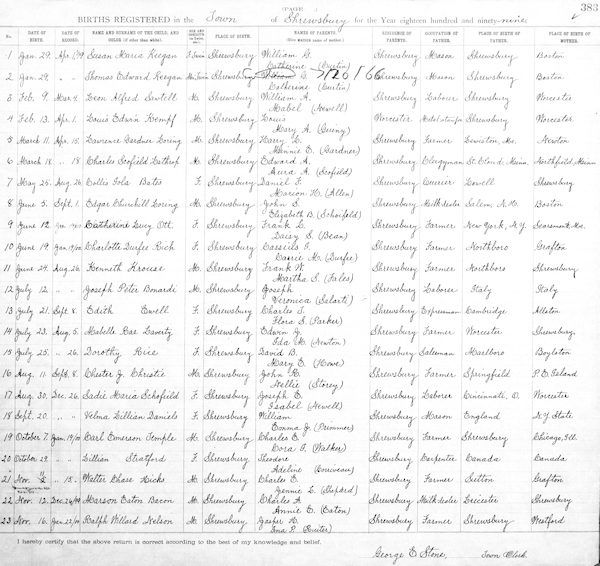 PAGE
383
BIRTHS REGISTERED in the Town of Shrewsbury for the Year eighteen hundred and ninety-nine
No. DATE OF BIRTH. DATE OF RECORD. NAME AND SURNAME OF THE CHILD, AND COLOR (if other than white). PLACE OF BIRTH. NAMES OF PARENTS. (Give maiden name of mother) RESIDENCE OF PARENTS. OCCUPATION OF FATHER. PLACE OF BIRTH OF FATHER. PLACE OF BIRTH OF MOTHER.
1 Jan. 29. Susan Maria Keegan F. Twin Shrewsbury William G. Shrewsbury Mason Shrewsbury Boston
Catherine (Curtin)
2 Jan. 29. " " Thomas Edward Keegan M. Twin Shrewsbury William G. 5/26/66 Shrewsbury Mason Shrewsbury Boston
Catherine (Curtin)
3 Feb. 9 Mar. 4 Leon Alfred Sawtell M. Shrewsbury William A. Shrewsbury Laborer Shrewsbury Worcester
Mabel (Newell)
4 Feb. 13 Apr. 1. Louis Edwin Kempf M. Shrewsbury Louis Worcester Shrewsbury Worcester
Mary A.
5 March 11 Apr. 15. Lawrence Gardner Goring M. Shrewsbury Harry L. Shrewsbury Farmer Lewiston, Me. Newton
Minnie E. (Gardner)
6 March 18. " 18 Charles Scofield Lathrop M. Shrewsbury Edward A. Shrewsbury Clergyman St. Cloud, Minn. Northfield, Minn
(Scofield)
7 May 25. Aug. 26. Hollis Iola Bates F. Shrewsbury Daniel F. Shrewsbury Currier Lowell Shrewsbury
Marion H. (Allen)
8 June 5. Sept. 1. Edgar Churchill Goring M. Shrewsbury John S. Shrewsbury Salem, N.H. Boston
Elizabeth B. (Schofield)
9 June 12 Catherine Lucy Ott. F. Shrewsbury Frank L. Shrewsbury Farmer New York, N.Y. Searsmont, Me.
Daisy S. (Bean)
10 June 19 Jan. 19/00 Charlotte Durfee Rich F. Shrewsbury Cassius F. Shrewsbury Farmer Northboro Grafton
Carrie M. (Durfee)
11 June 24. Aug. 26. Kenneth Krouse M. Shrewsbury Frank W. Shrewsbury Farmer Northboro Shrewsbury
Martha S. (Fales)
12 July 12 " " Joseph Peter Bonardi M. Shrewsbury Joseph Shrewsbury Laborer Italy Italy
Veronica
13 July 21 Sept. 8. Edith Ewell F. Shrewsbury Charles T. Shrewsbury Expressman Cambridge Allston
Flora S. (Parker)
14 July 23. Aug. 5. Mabelle Rae Daverty F. Shrewsbury Edwin J. Shrewsbury Farmer Worcester Shrewsbury
Ida M. (Newton)
15 July 25. " 26 Dorothy Rice F. Shrewsbury David B. Shrewsbury Salesman Marlboro Boylston
Mary E. (Howe)
16 Aug. 11 Sept. 8. Chester J. Christie M. Shrewsbury John H. Shrewsbury Farmer Springfield P.E. Island
Nellie (Storey)
17 Aug. 30. Dec. 26. Sadie Maria Schofield F. Shrewsbury Joseph E. Shrewsbury Laborer Cincinnati, O. Worcester
Isabel (Newell)
18 Sept. 20. " " Velma Lillian Daniels F. Shrewsbury William Shrewsbury Mason England N.Y. State
Emma J. (Primmer)
19 October 7. Jan. 19/00 Carl Emerson Temple M. Shrewsbury Charles E. Shrewsbury Farmer Shrewsbury Chicago, Ill.
Cora F. (Walker)
20 October 29. " " Lillian Stratford F. Shrewsbury Theodore Shrewsbury Carpenter Canada Canada
Adeline
21 Nov. " 15. Walter Chase Hicks M. Shrewsbury Charles E. Shrewsbury Farmer Sutton Grafton
Jennie L. (Shepard)
22 Nov. 12. Dec. 26/99 Marson Eaton Bacon M. Shrewsbury Charles A. Shrewsbury Leicester Shrewsbury
Annie E. (Eaton)
23 Nov. 16. Jan. 22/00 Ralph Willard Nelson M. Shrewsbury Jasper H. Shrewsbury Farmer Shrewsbury Westford
Ina P.
I hereby certify that the above return is correct according to the best of my knowledge and belief.
George E. Stone, Town Clerk.